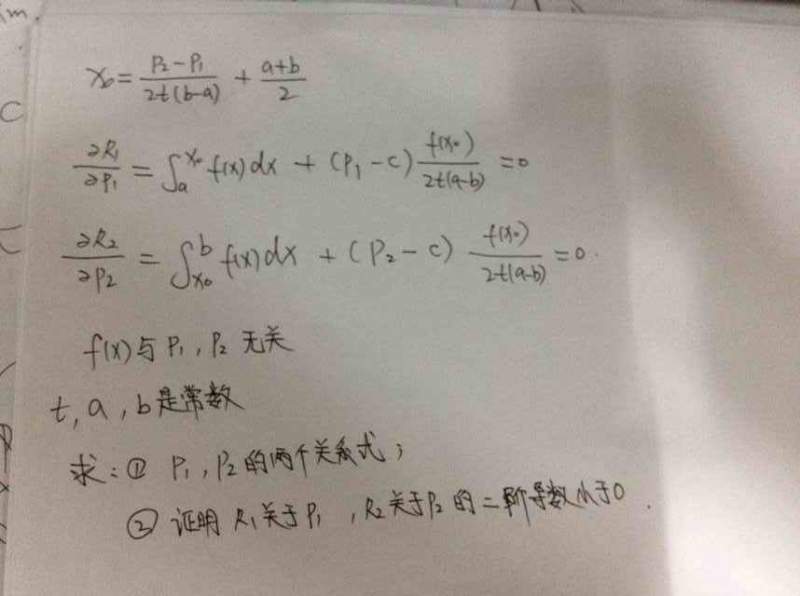 im
C
x₀ = \frac{P₂-P₁}{2t(b-a)} + \frac{a+b}{2}
\frac{∂R₁}{∂P₁} = ∫_a^{x₀} f(x)dx + (P₁-c) \frac{f(x₀)}{2t(a-b)} = 0
\frac{∂R₂}{∂P₂} = ∫_{x₀}^b f(x)dx + (P₂-c) \frac{f(x₀)}{2t(a-b)} = 0.
f(x)与 P₁, P₂ 无关
t, a, b是常数
求:① P₁, P₂的两个关系式;
② 证明 R₁关于P₁, R₂关于P₂的二阶导数小于0.